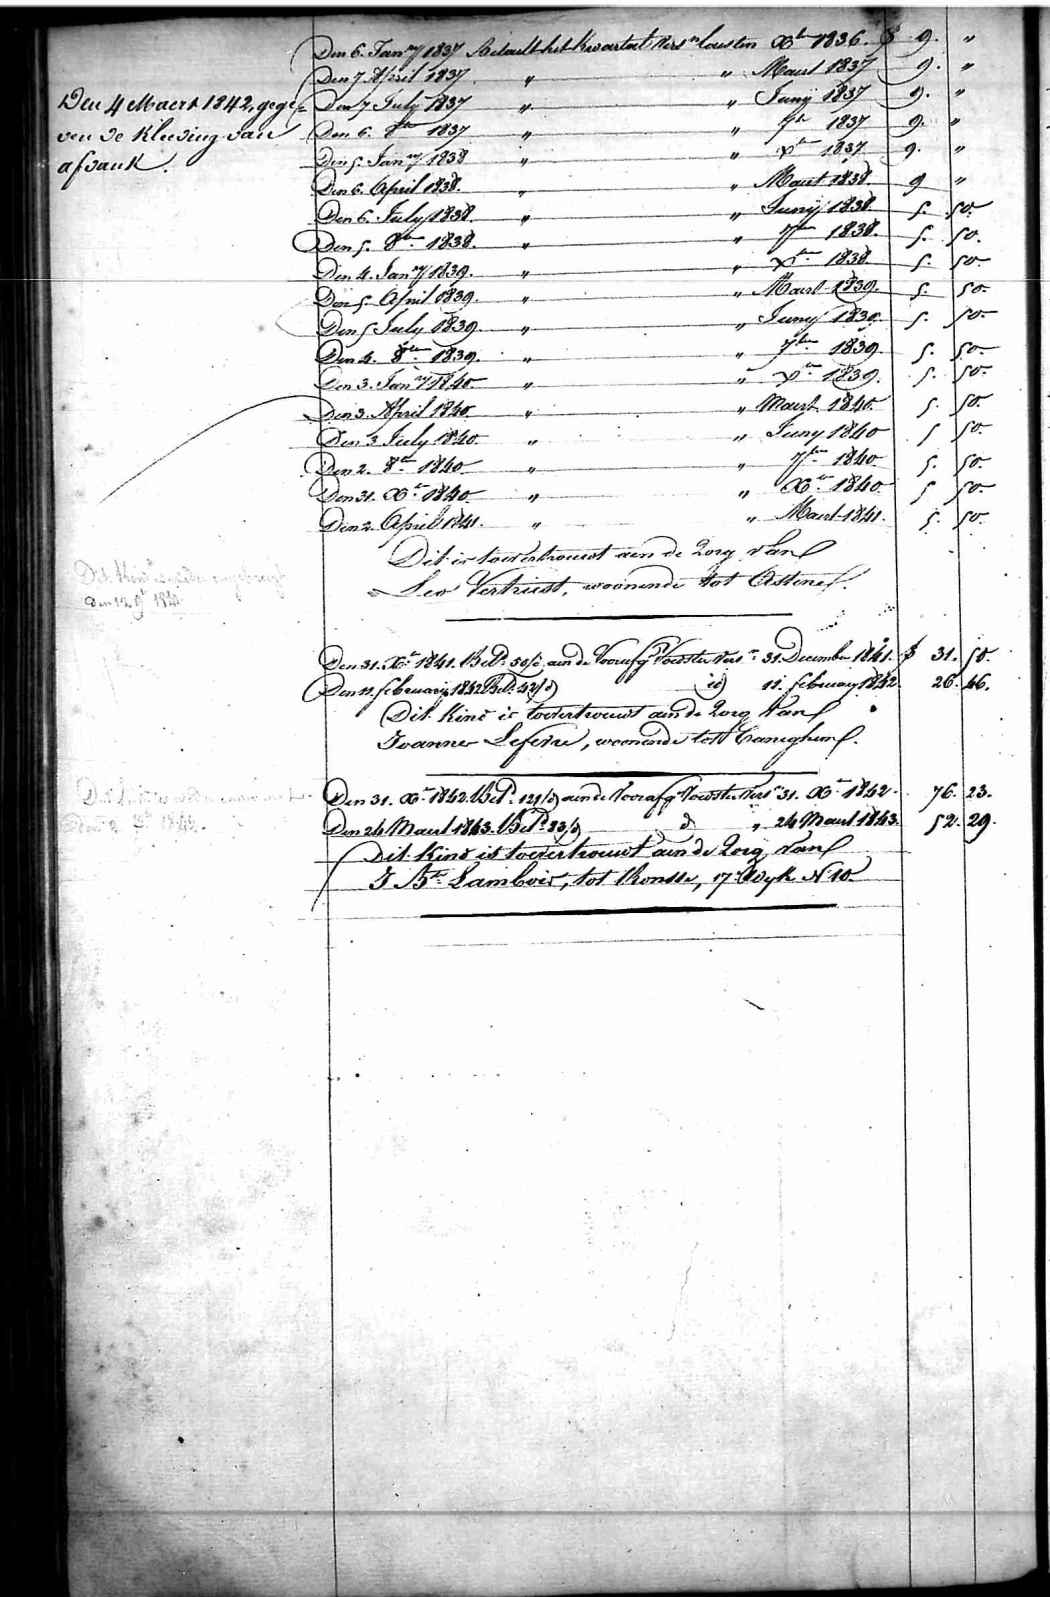 Den 6. Jan.ry 1837 Betaelt het kwartael vers.n laesten Xber 1836. f 9. "
Den 7 April 1837 " " Maert 1837 9. "
Den 4 Maert 1842, gege-
ven de kleeding van
afdank.
Den 7 July 1837 " " Juny 1837 9. "
Den 6. 8ber 1837 " " 7ber 1837 9. "
Den 5. Jan.ry 1838 " " Xber 1837 9. "
Den 6. April 1838. " " Maert 1838. 9 "
Den 6. July 1838. " " Juny 1838. 5. 50.
Den 5. 8ber 1838. " " 7ber 1838. 5. 50.
Den 4. Jan.ry 1839. " " Xber 1838 5. 50.
Den 5. April 1839. " " Maert 1839. 5. 50.
Den 5 July 1839. " " Juny 1839. 5. 50.
Den 4. 8ber 1839. " " 7ber 1839. 5. 50.
Den 3. Jan.ry 1840. " " Xber 1839. 5. 50.
Den 3. April 1840. " " Maert 1840. 5. 50.
Den 3 July 1840. " " Juny 1840 5 50.
Den 2. 8ber 1840 " " 7ber 1840 5. 50.
Den 31. Xber 1840. " " Xber 1840 5 50.
Den 2. April 1841. " " Maert 1841. 5. 50.
Dit is toevertrouwt aen de Zorg van
Leo Vertriest, woonende tot Astene.
Den 31. Xber 1841. Bet.d 50/d aen de Voorafg. Voedster vers.n 31. December 1841. f 31. 50.
Den 11. february 1842 Bet.d 42/d id 11. february 1842. 26. 46.
Dit kind is toevertrouwt aen de Zorg van
Joannes Lefevre, woonende tot Caneghem.
Den 31. Xber 1842. Bet.d 121/d aen de Voorafg. Voedster vers.n 31. Xber 1842. 76. 23.
Den 24 Maert 1843. Bet.d 83/d d " 24 Maert 1843. 52. 29.
Dit kind is toevertrouwt aen de Zorg van
J. Bte Lambois, tot Ronsse, 17 Wyk N 10.